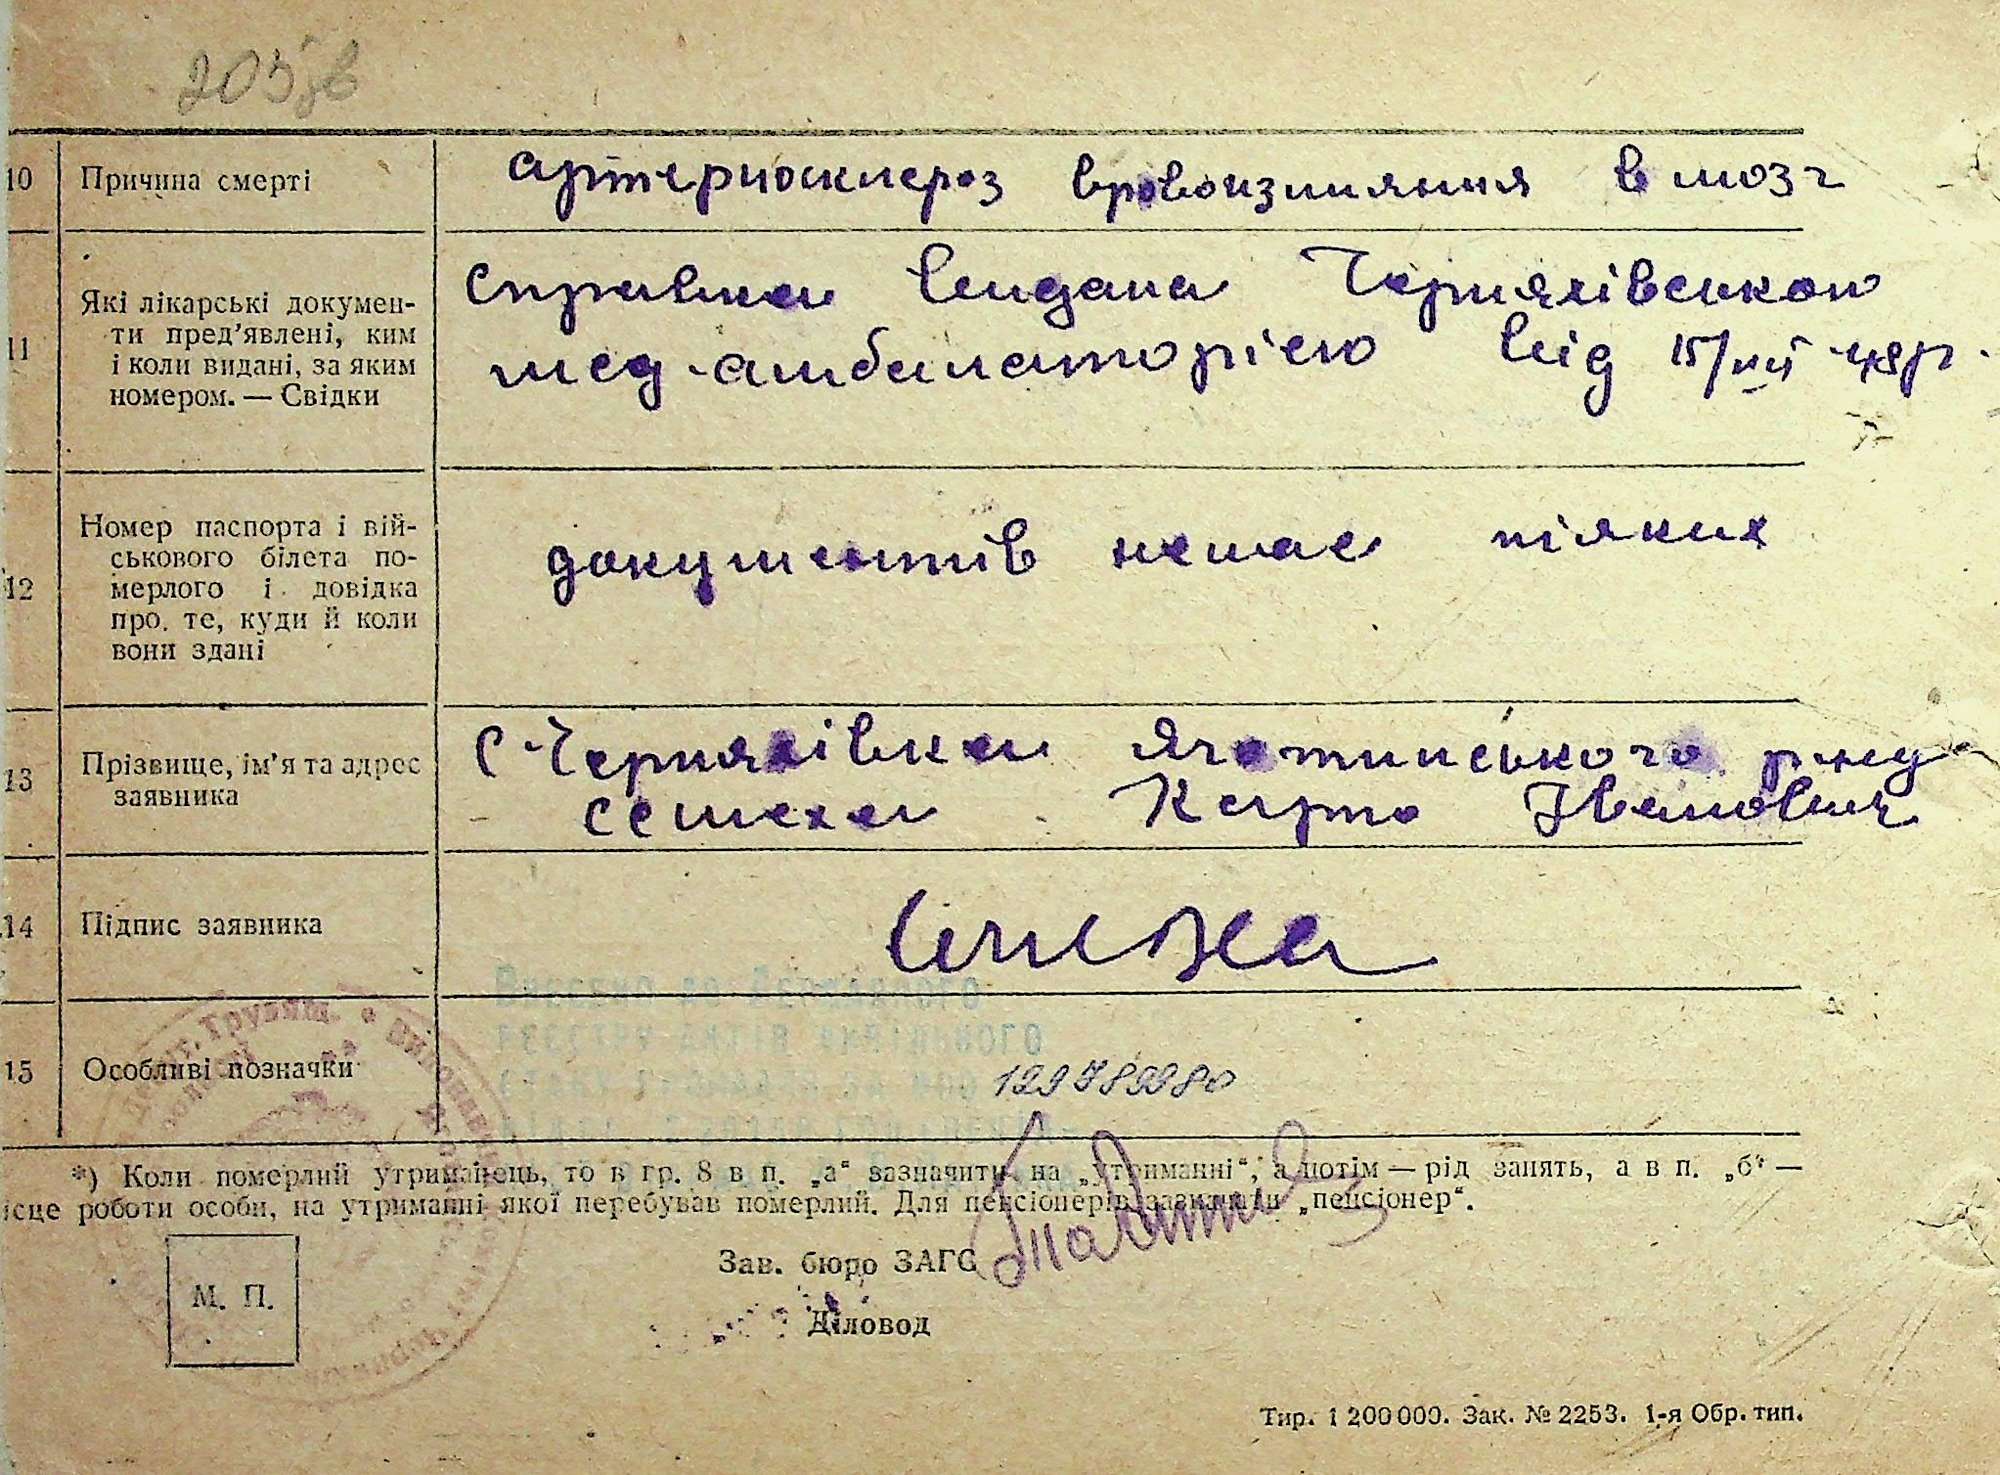 203зв
10 Причина смерті
артериосклероз вровоизлияния в мозг
11 Які лікарські докумен-
ти пред’явлені, ким
і коли видані, за яким
номером. — Свідки
справка видана Черняхівською
мед-амбалаторією від 15/VII 48р.
12 Номер паспорта і вій-
ськового білета по-
мерлого і довідка
про те, куди й коли
вони здані
документів немає ніяких
13 Прізвище, ім’я та адрес
заявника
с Черняхівка Яготинського р-ну
Карпо Іванович
14 Підпис заявника
15 Особливі позначки
129789980
*) Коли померлий утриманець, то в гр. 8 в п. „а“ зазначити на „утриманні“, а потім — рід занять, а в п. „б“ —
ісце роботи особи, на утриманні якої перебував померлий. Для пенсіонерів зазначати „пенсіонер“.
Зав. бюро ЗАГС
М. П.
Діловод
Тир. 1 200 000. Зак. № 2253. 1-я Обр. тип.